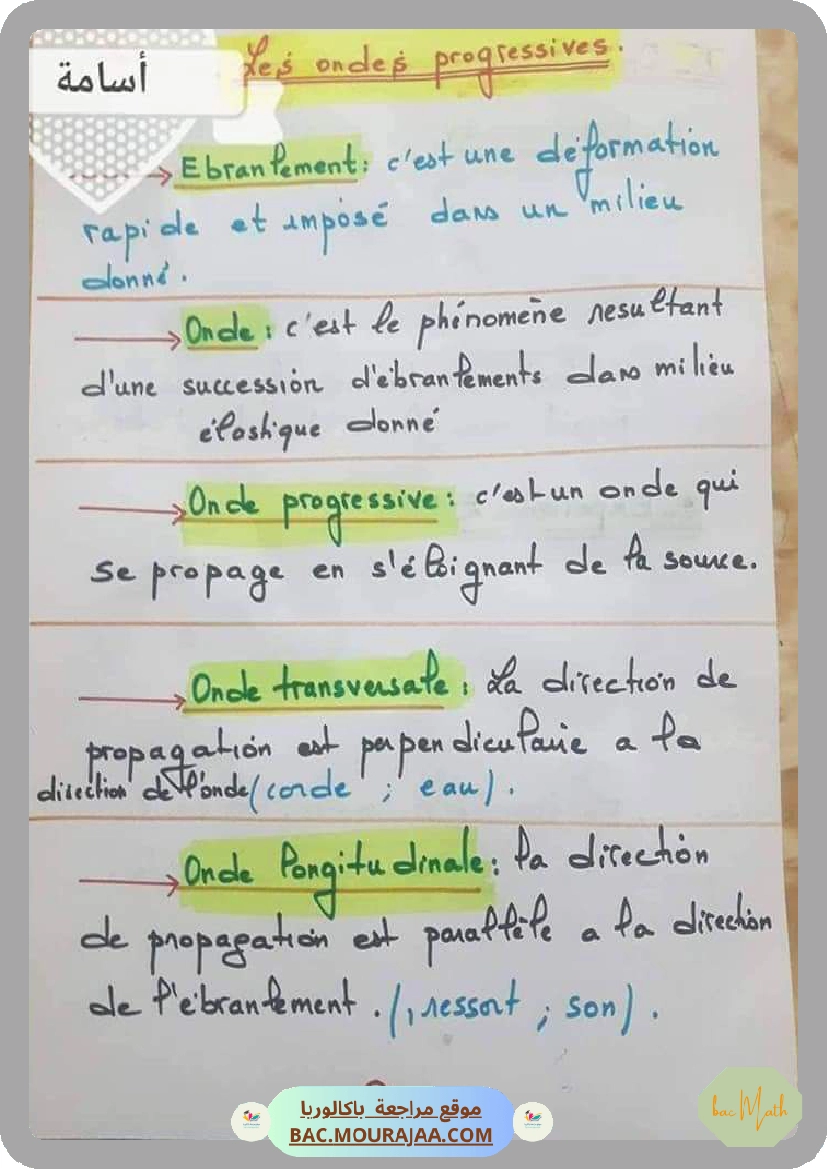 أسامة
Les ondes progressives.
Ebranlement: c'est une déformation
rapide et imposé dans un milieu
donné.
Onde: c'est le phénomène resultant
d'une succession d'ébranlements dans milieu
élastique donné
Onde progressive: c'est un onde qui
se propage en s'éloignant de la source.
Onde transversale: La direction de
propagation est perpendiculaire a la
direction de l'onde (corde ; eau).
Onde longitudinale: la direction
de propagation est parallèle a la direction
de l'ébranlement. (, ressort ; son).
موقع مراجعة باكالوريا
BAC.MOURAJAA.COM
bac Math